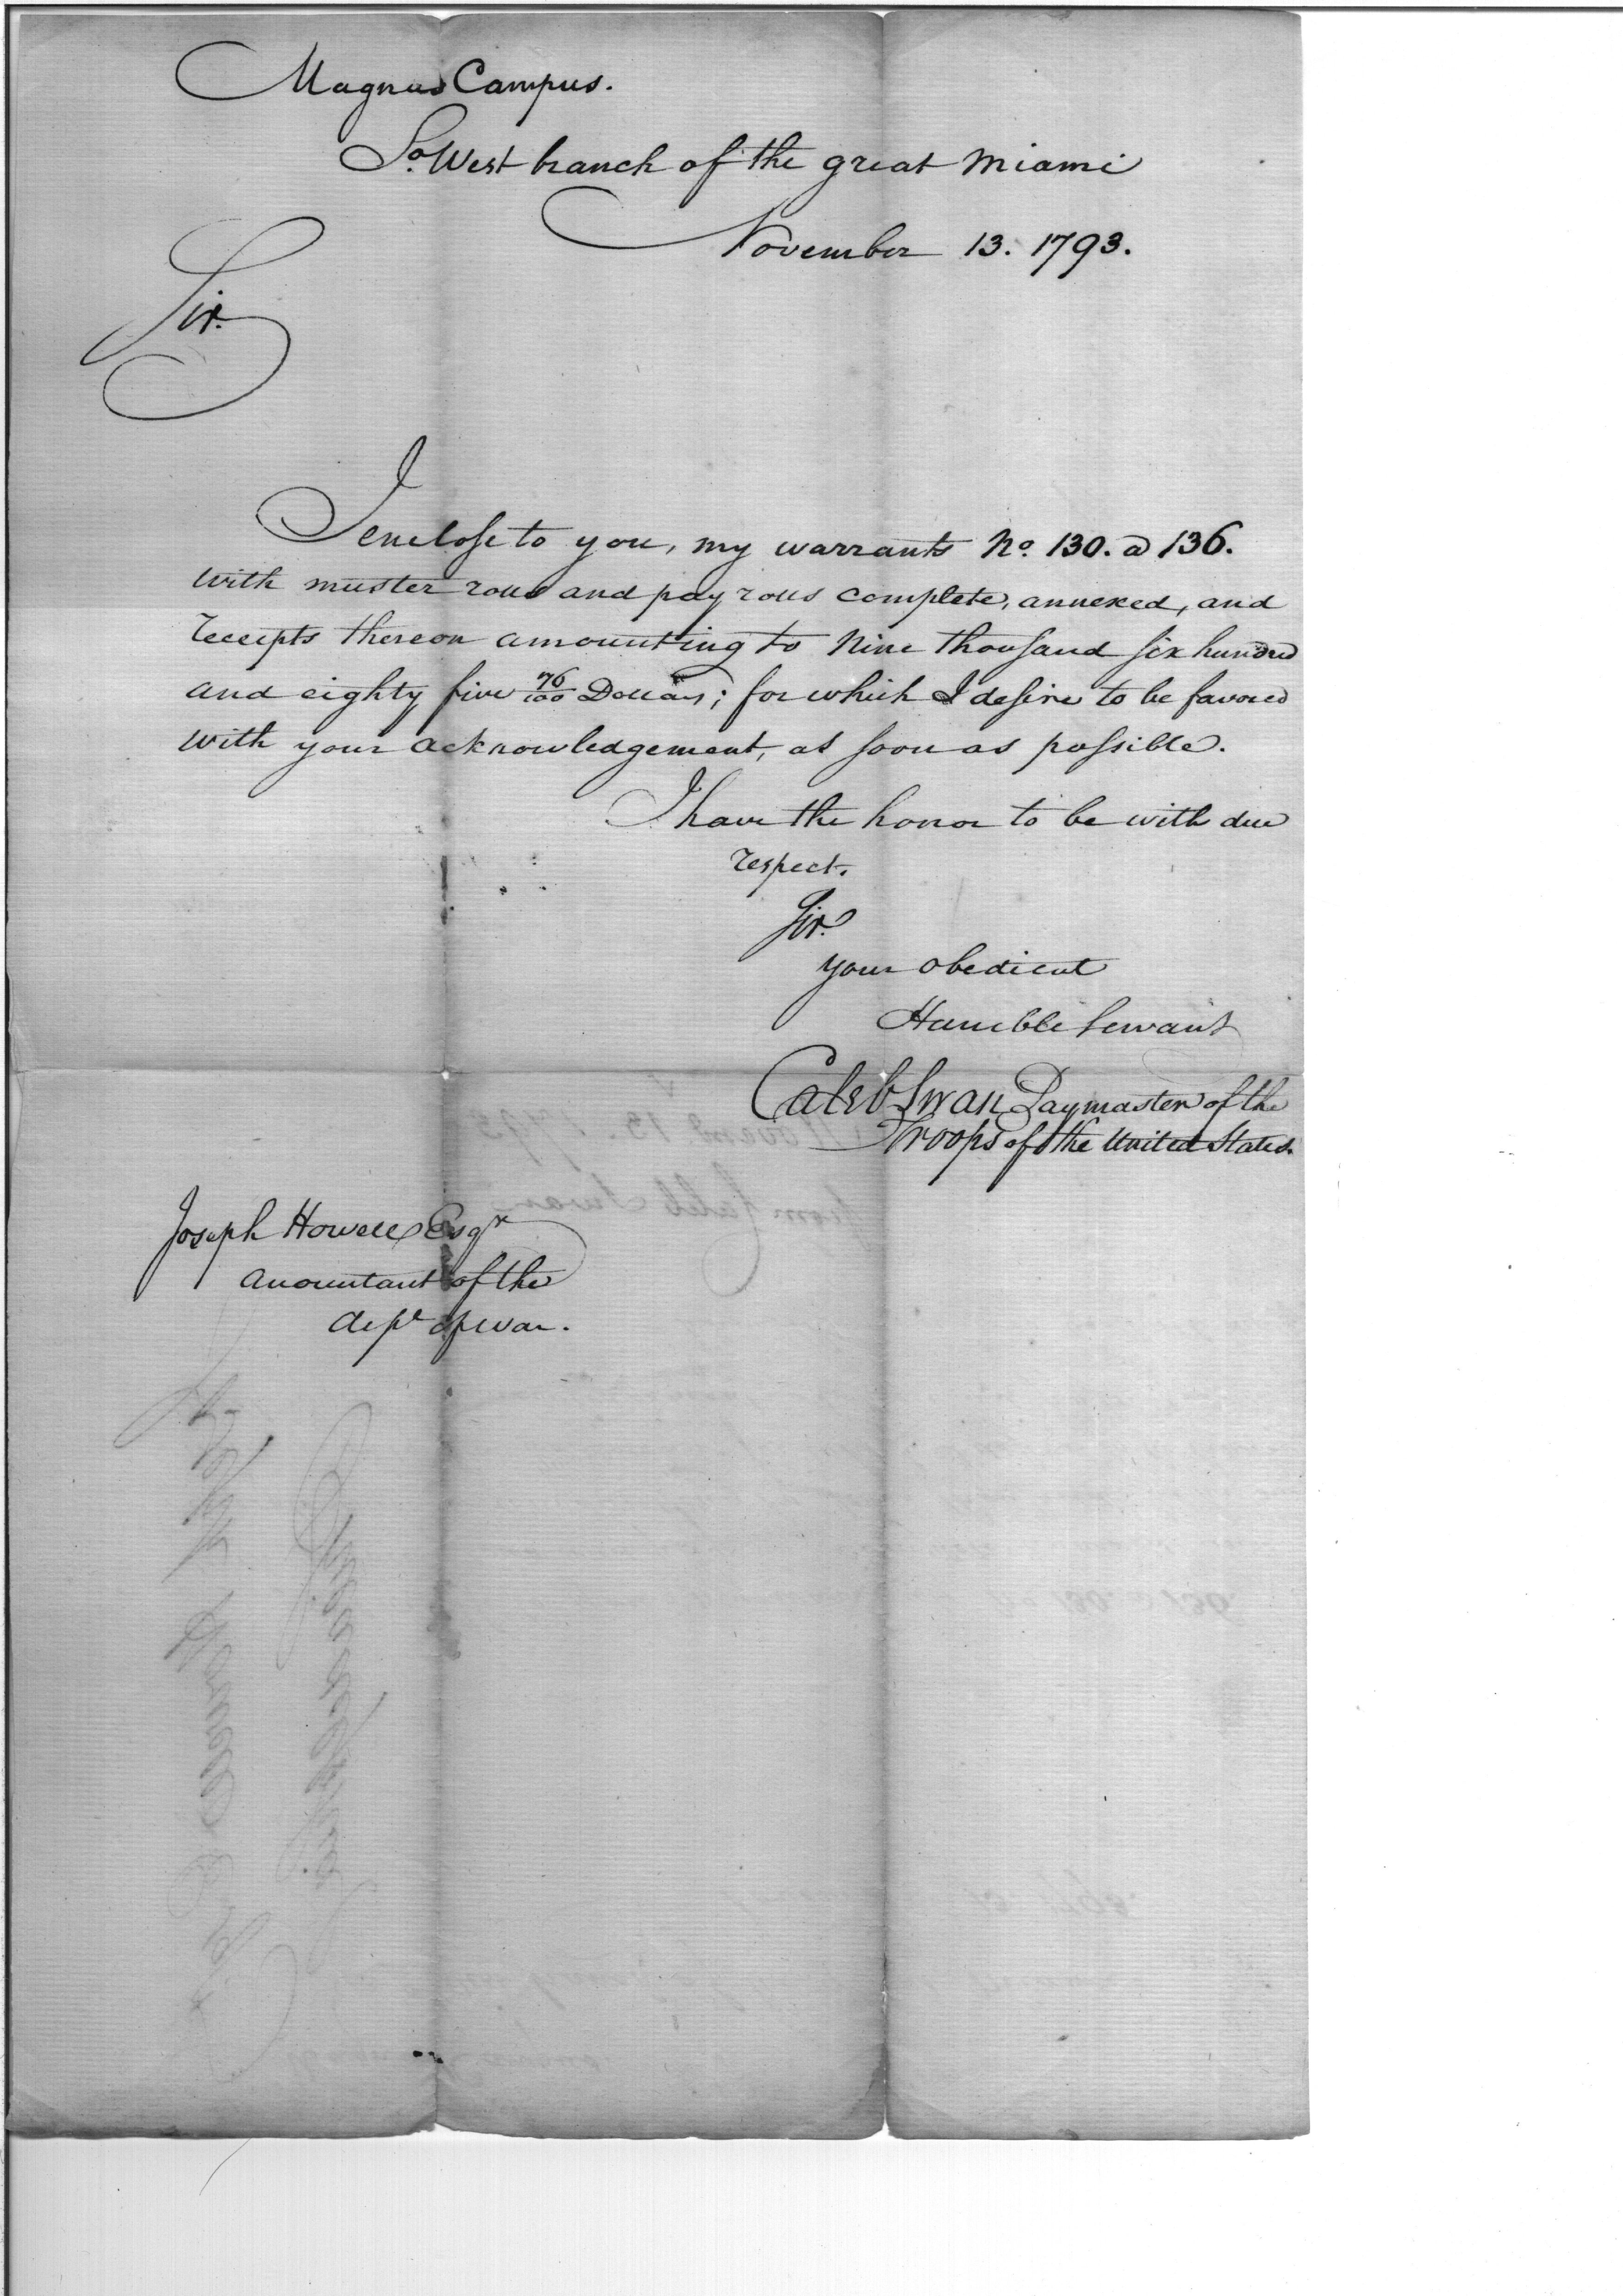 Magnus Campus.
So. West branch of the great Miami
November 13. 1793.
Sir.
I enclose to you, my warrants No. 130. a 136.
with muster rolls and pay rolls complete, annexed, and
receipts thereon amounting to Nine thousand six hundred
and eighty five 76/100 Dollars; for which I desire to be favored
with your acknowledgement, as soon as possible.
I have the honor to be with due
respect.
Sir.
your obedient
Humble servant
Caleb Swan Paymaster of the
Troops of the United States.
Joseph Howell Esqr
accountant of the
dept of war.